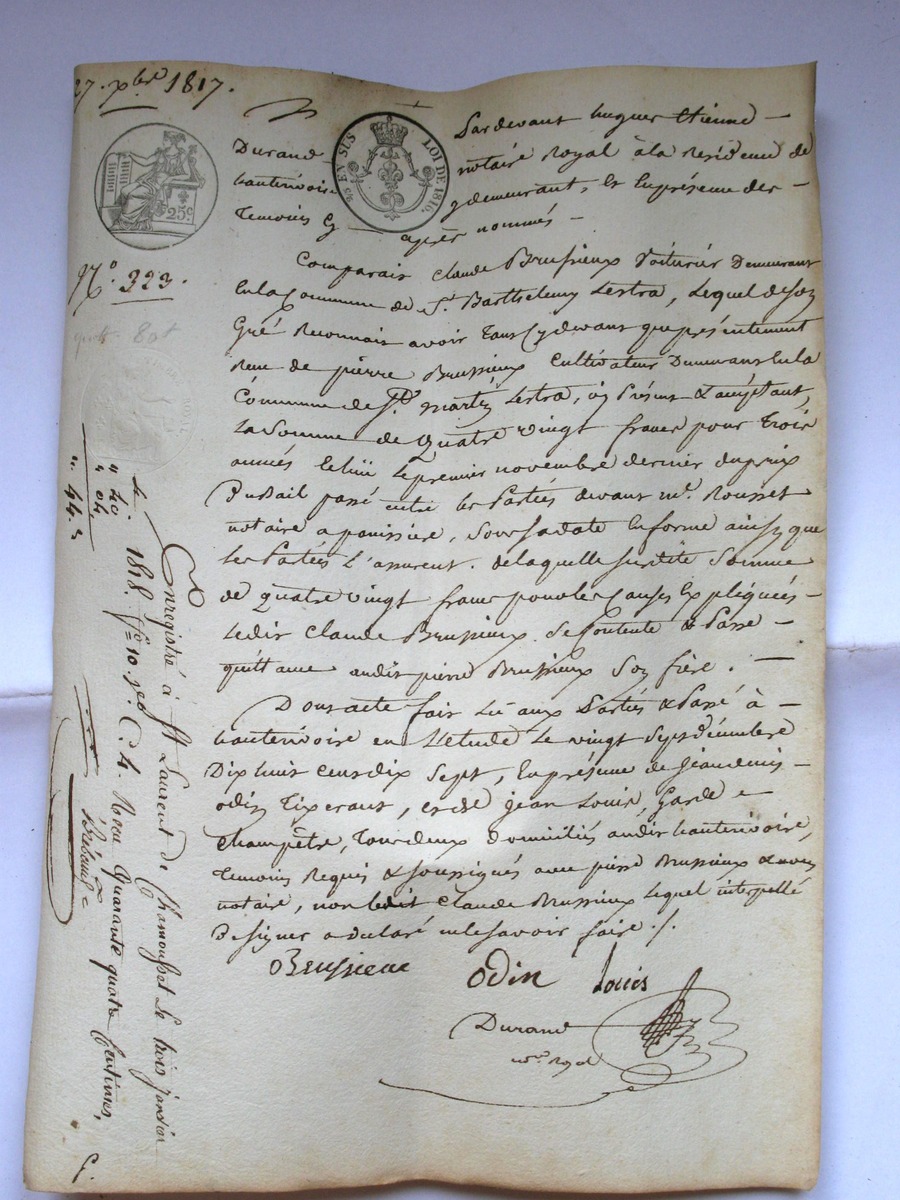 27. xbre 1817.
25c
EN SUS
LOI DE 1816.
No. 323.
quitt. 80f
Pardevant hugues Etienne —
Durand notaire Royal à la Residence de
hauterivoire y demeurant, et En présence des —
Temoins Cy — après nommés —
Comparait Claude Brussieux Voiturier Demeurant
En la Commune de St. Barthelemy Lestra, Lequel de son
Gré Reconnait avoir Tant Cy devant que présentement
Recu de pierre Brussieux Cultivateur Demeurant En la
Commune de St. Martin Lestra, icy Présent & acceptant,
La Somme de Quatre Vingt francs pour Trois
années Echüe Le premier novembre dernier du prix
Du Bail passé entre les Parties devant me. Rousset
notaire a panissière, Sous Sa date En forme ainsy que
les Parties L'assurent. de laquelle Susdite Somme
de quatre vingt francs pour les Causes Expliquées —
Ledit Claude Brussieux Se Contente & Passe —
quittance audit pierre Brussieux Son frère. —
Dont acte fait Lû aux Parties & Passé à —
hauterivoire en L'étude Le vingt Sept décembre
Dix huit Cent dix Sept, En présence de Jean denis —
odin Tixerant, et de Jean Louis, Garde
Champêtre, Tous deux domiciliés audit hauterivoire,
Temoins Requis & Soussignés avec pierre Brussieux & nous
notaire, non Ledit Claude Brussieux Lequel interpellé
De signer a declaré ne le Savoir faire ./.
Brussieux odin Louis
Durand
nore. Royal
Enregistré à St Laurent de Chamousset Le trois janvier
1818. fo 10 ro. C. 4. Recu Quarante quatre Centimes,
" 40
" 04
" 44